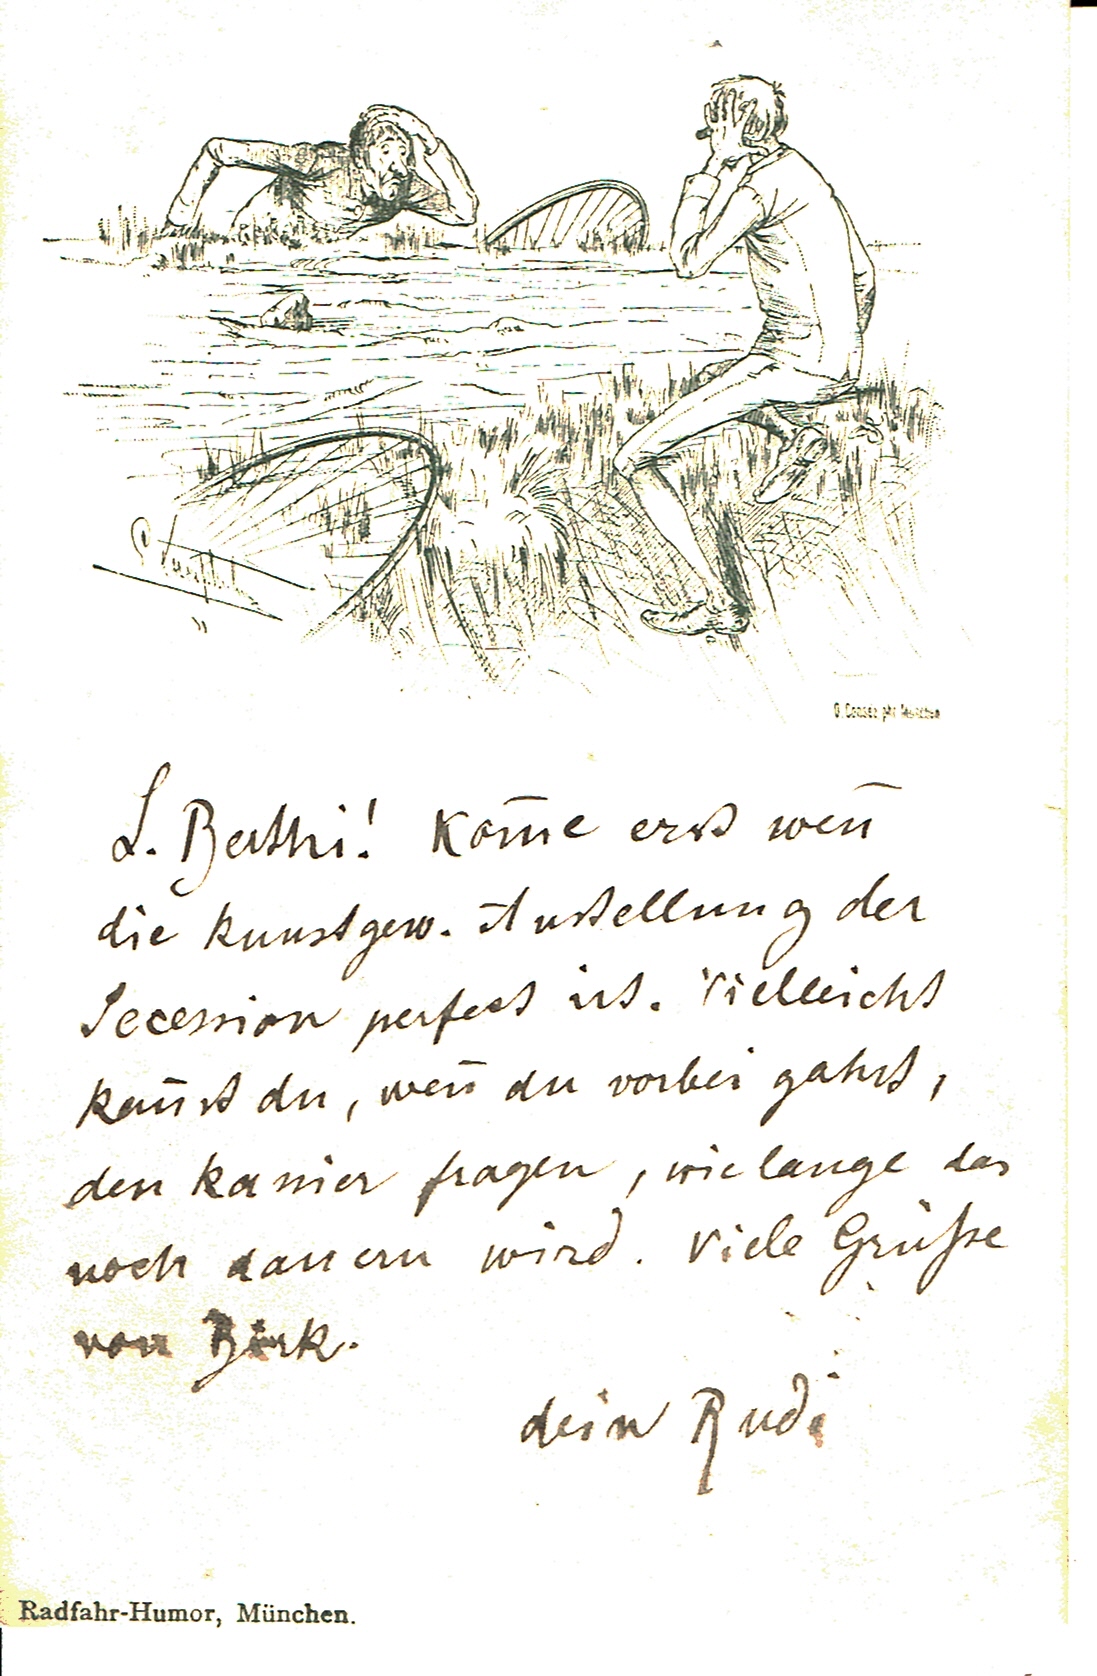 L. Berthi! Kom̅e erst wen̅
die kunstgew. Austellung der
Secession perfect ist. Vielleicht
kan̅st du, wen̅ du vorbei gahst,
den Kassier fragen, wie lange das
noch dauern wird. Viele Grüße
von Birk.
dein Rudi
Radfahr-Humor, München.